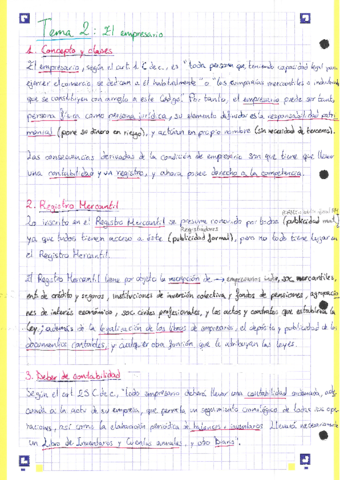 Tema 2: El empresario
1. Concepto y clases
El empresario, según el art. 1 C. de c., es "toda persona que teniendo capacidad legal para
ejercer el comercio, se dedican a él habitualmente" o "las compañías mercantiles o industriales
que se constituyen con arreglo a este Código". Por tanto, el empresario puede ser tanto
persona física como persona jurídica, su elemento definidor es la responsabilidad patri-
monial (pone su dinero en riesgo), y actúan en propio nombre (sin necesidad de terceros).
Las consecuencias derivadas de la condición de empresario son que tiene que llevar
una contabilidad y un registro, y ahora posee derecho a la competencia.
2. Registro Mercantil
Lo inscrito en el Registro Mercantil se presume conocido por todos (publicidad
registradores
ya que todos tienen acceso a éste (publicidad formal), pero no todo tiene lugar en
el Registro Mercantil.
El Registro Mercantil tiene por objeto la inscripción de → empresarios indiv, soc. mercantiles,
ent. de crédito y seguros, instituciones de inversión colectiva y fondos de pensiones, agrupacio-
nes de interés económico, soc. civiles profesionales, y los actos y contratos que establezca la
ley; además de la legalización de los libros de empresarios, el depósito y publicidad de los
documentos contables, y cualquier otra función que le atribuyan las leyes.
3. Deber de contabilidad
Según el art. 25 C. de c., "todo empresario deberá llevar una contabilidad ordenada, ade-
cuada a la acto de su empresa, que permita un seguimiento cronológico de todas sus ope-
raciones, así como la elaboración periódica de balances e inventarios. Llevará necesariamente
un Libro de Inventarios y Cuentas anuales, y otro Diario".